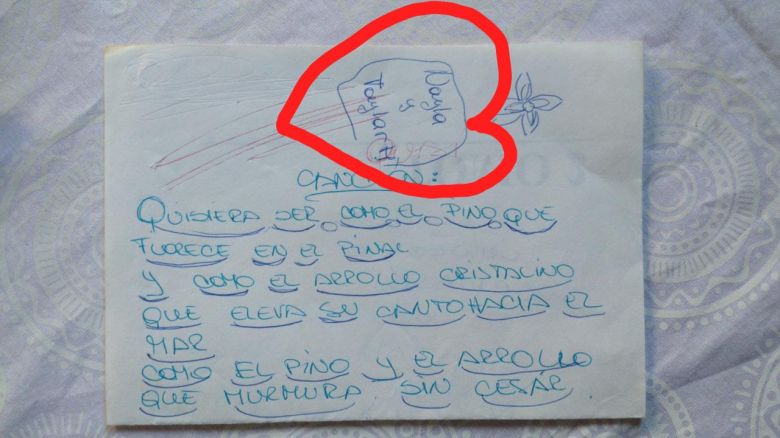 Nayla
y
Taylar
CANCIÓN:
QUISIERA SER COMO EL PINO QUE
FLORECE EN EL PINAL
Y COMO EL ARROLLO CRISTALINO
QUE ELEVA SU CANTO HACIA EL
MAR
COMO EL PINO Y EL ARROLLO
QUE MURMURA SIN CESAR.